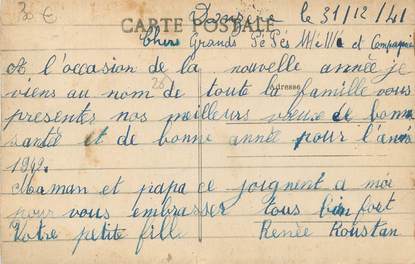 30 €
CARTE POSTALE
le 31/12/41
Chers Grands Pépés Mémé et Compagnie
A l'occasion de la nouvelle année je
viens au nom de toute la famille vous
Adresse
presenter nos meilleurs vœux de bonne
santé et de bonne année pour l'an
1942.
Maman et papa ce joignent a moi
pour vous embrasser tous bien fort
Votre petite fille Renée Roustan